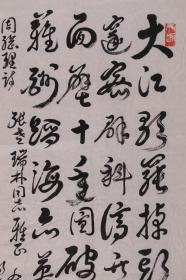 大江歌罷掉頭
邃密群科濟世
面壁十年圖破
難酬蹈海亦英
周總理詩
張老瑞朴同志雅正